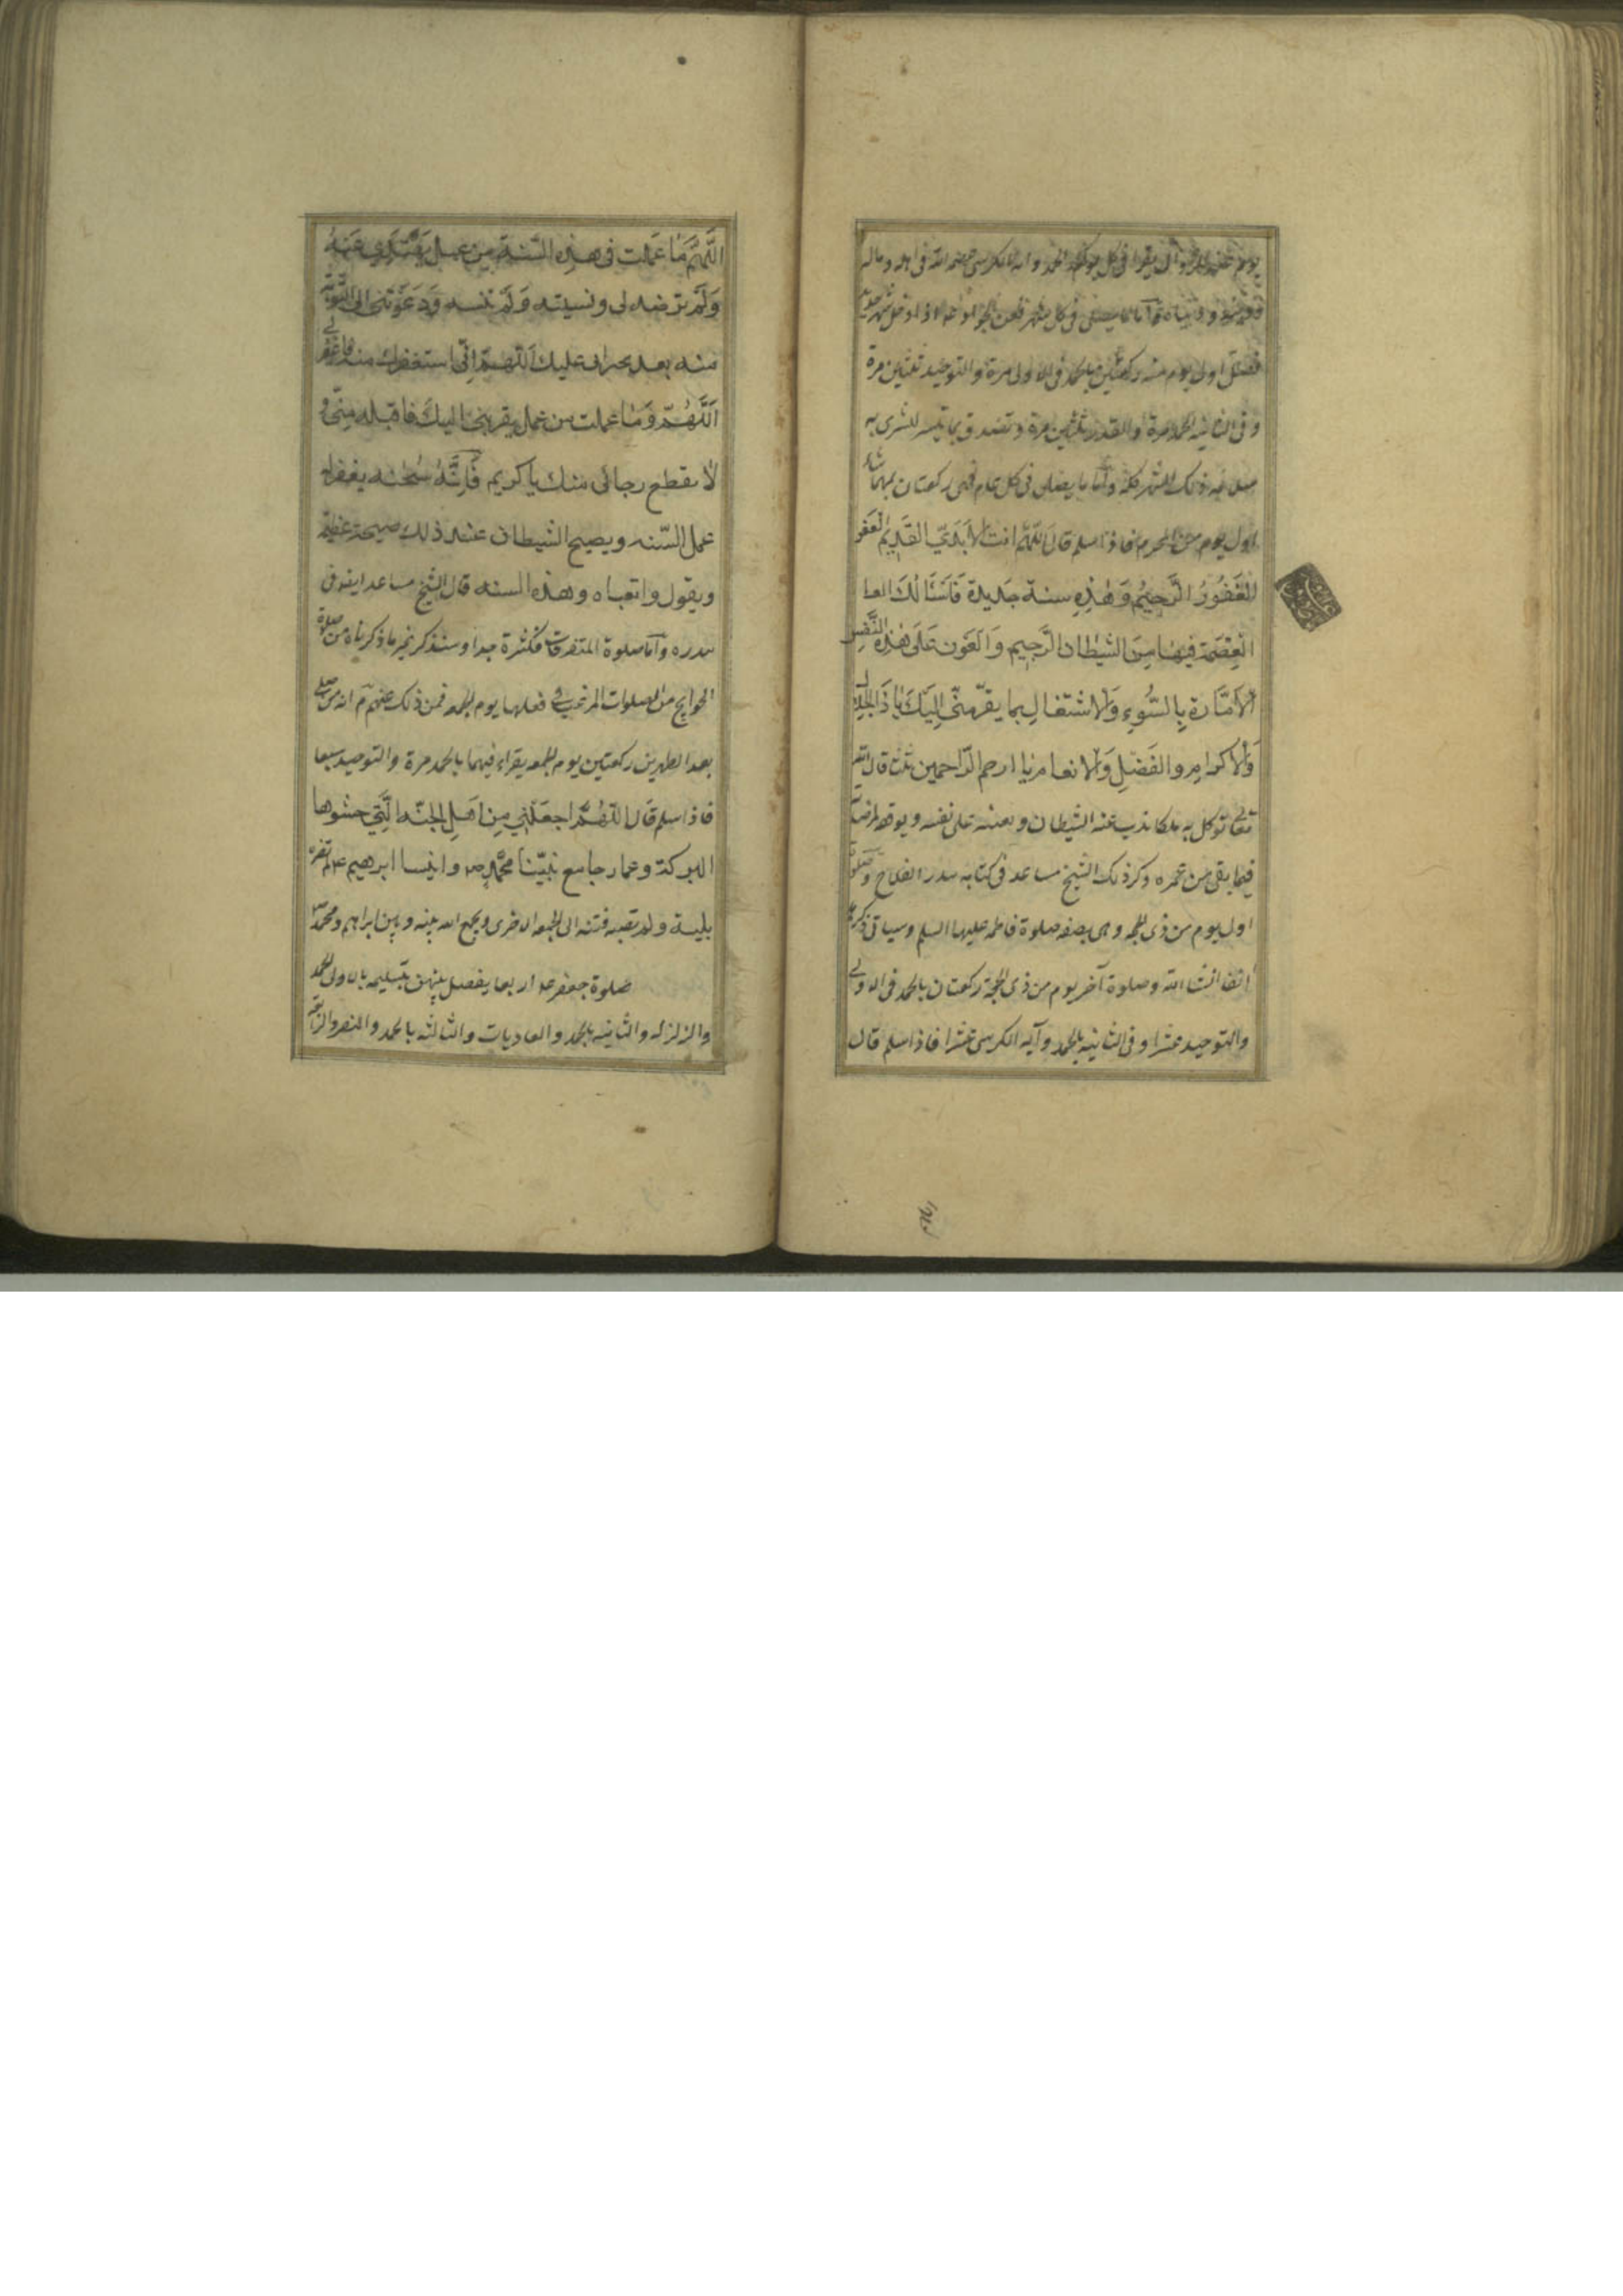 في كل الحمد وآية الكرسي حفظه الله في أهله وماله
ودينه ودنياه وأما ما يصلى في كل شهر فعن الجواد عم إذا دخل شهر جديد
فصل أول يوم منه ركعتين بالحمد في الأولى مرة والتوحيد ثلثين مرة
وفي الثانية الحمد مرة والقدر ثلثين مرة وتتصدق بما تيسر تشتري به
ذلك الشهر كله وأما ما يصلى في كل عام فهي ركعتان بمهما شاء
أول يوم من المحرم فإذا سلم قال اللهم انت الابدي القديم الغفو
الْغَفُورُ الرَّحِيمُ وَهٰذِهِ سنة جَدِيدة فَاَسْئَالُكَ العا
الْعِصْمَة فيها مِنَ الشيطان الرَّجيم وَالعَون عَلى هٰذِهِ النَّفْسِ
الاَمّٰارة بِالسُّوءِ وَالاشتغالِ بما يقرّبنى اِلَيْكَ يٰا ذَا الجلٰالِ
وَالاكرامِ والفَضْلِ وَالانعام يا ارحم الرّاحمين ثلث قال الله
تعالى توكل به ملكا يذب عنه الشيطان ويعينه على نفسه ويوفقه لمرضاته
فيما بقى من عمره وذكر ذلك الشيخ مساعد في كتابه بيدر الفلاح وصلوة
أول يوم من ذي الحجة وهي بصفة صلوة فاطمة عليها السلم وسياتي ذكرها
انفا انشاء الله وصلوة آخر يوم من ذي الحجة ركعتان بالحمد في الاولى
والتوحيد عشرا وفي الثانية بالحمد وآية الكرسي عشرا فاذا سلم قال
اللَّهُمَّ مَا عَمِلت فى هذه السَّنة مِن عمل نهيتنى عَنهُ
وَلَمْ ترضه لى ونسيته وَلَمْ تنسه وَدَعَوْتَنى الى التَّوبَة
منه بعد اجترائى عليك اَللّهمّ اِنّى استغفرك منه فاغفر لى
اَللَّهُمّ وَمَا عملت من عمل يقربنى اليكَ فاقبله مِنّى و
لا تقطع رجائى منك يا كريم فَاِنَّهُ سُبحٰنه يغفر له
عمل السّنه ويصيح الشيطان عند ذلك صيحة عظيمة
ويقول واتعباه وهذه السنه قال الشيخ مساعد ايضا في
بيدره وأما صلوة المتفرقات فكثيرة جدا وسنذكر غير ما ذكرناه من صلوة
الحوايج من الصلوات المرغب في فعلها يوم الجمعه فمن ذلك عنهم عم انه من صلى
بعد الظهرين ركعتين يوم الجمعه يقراء فيهما بالحمد مرة والتوحيد سبعا
فاذا سلم قال اللّهُمَّ اجعَلْنِي مِن اَهلِ الجنّه الَّتِي حشوها
البركة وعمارها مع نبيّنا محمّدٍ ص وابينا ابرهيم عم لم تضره
بلية ولم تصبه فتنه الى الجمعه الاخرى ويجمع الله بينه وبين ابراهيم ومحمد ص
صلوة جعفر عم اربعا يفصل بينهن بتسليمه بالاولى الحمد
والزلزله والثانيه بالحمد والعاديات والثالثه بالحمد والنصر والرابعة